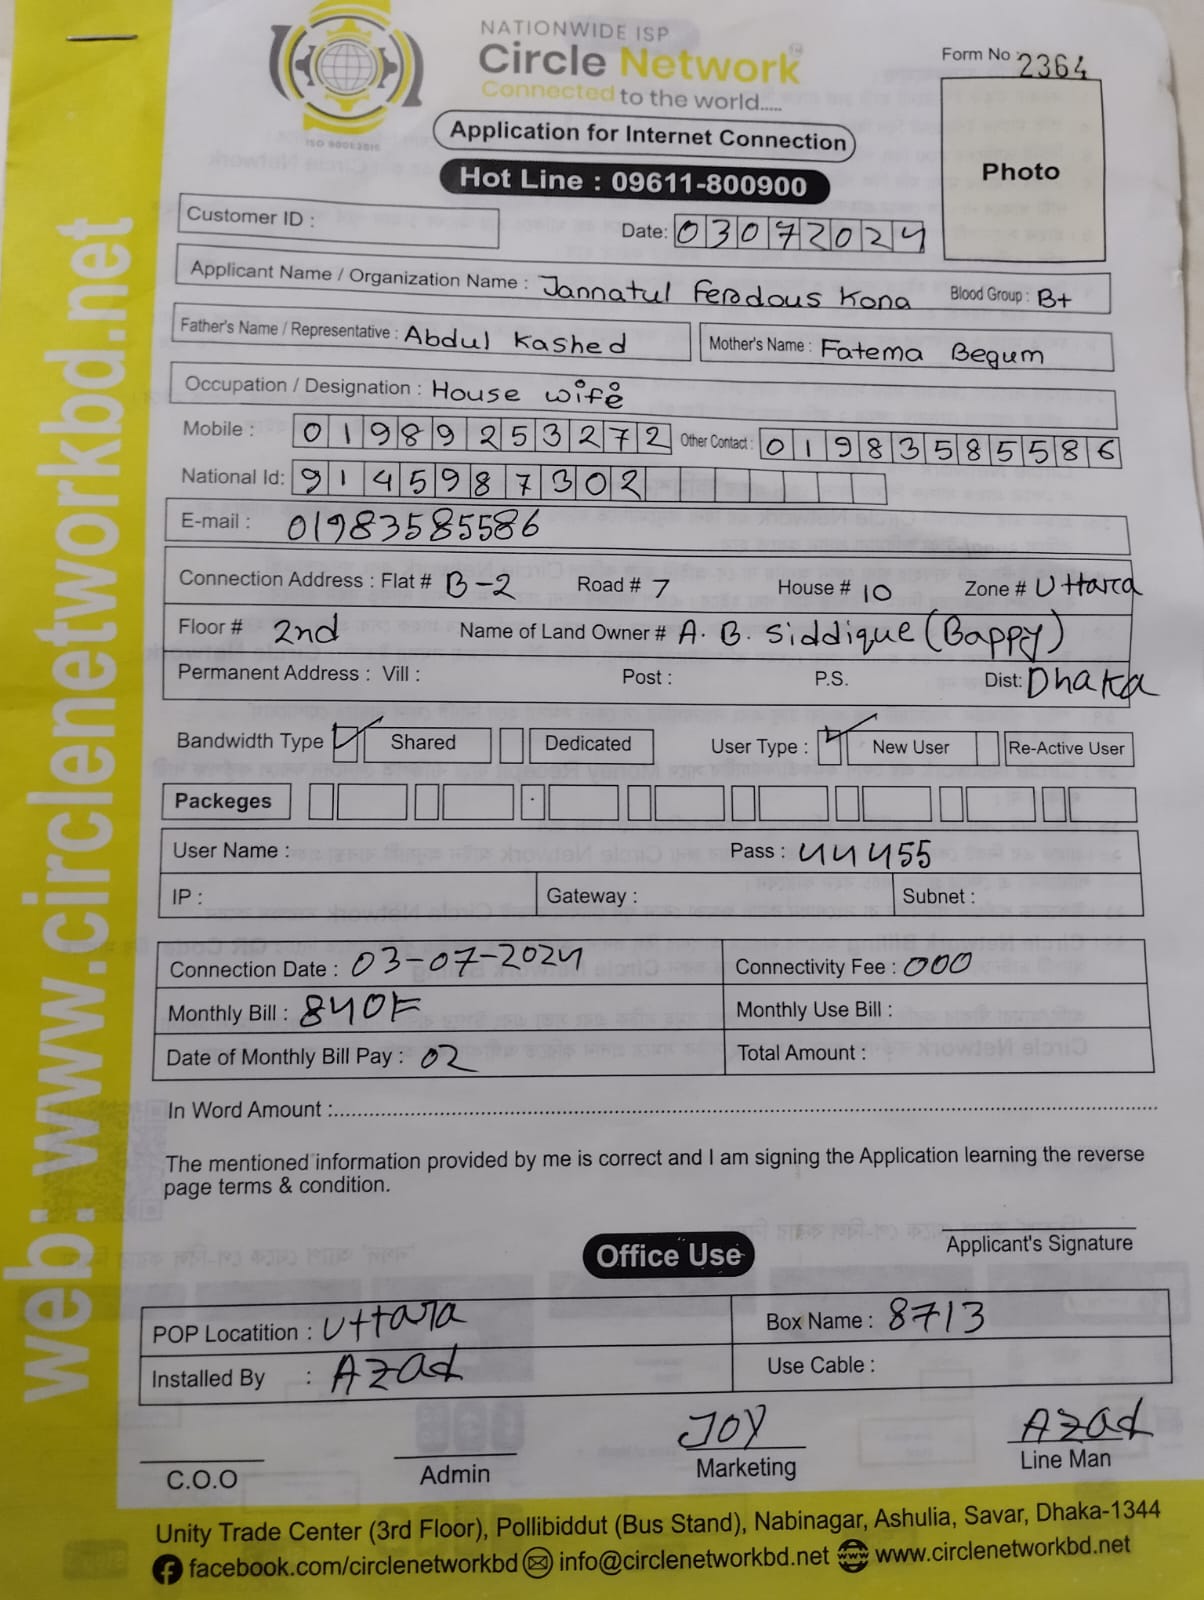 NATIONWIDE ISP
Circle Network
Connected to the world.....
ISO 9001:2015
Form No 2364
Application for Internet Connection
Hot Line : 09611-800900
Photo
Customer ID :
Date: 03072024
Applicant Name / Organization Name : Jannatul Ferdous Kona Blood Group : B+
Father's Name / Representative : Abdul Kashed Mother's Name : Fatema Begum
Occupation / Designation : House wife
Mobile : 01989253272 Other Contact : 01983585586
National Id: 9145987302
E-mail : 01983585586
Connection Address : Flat # B-2 Road # 7 House # 10 Zone # Uttara
Floor # 2nd Name of Land Owner # A. B. Siddique (Bappy)
Permanent Address : Vill : Post : P.S. Dist: Dhaka
Bandwidth Type Shared Dedicated User Type : New User Re-Active User
Packeges
User Name : Pass : 44455
IP : Gateway : Subnet :
Connection Date : 03-07-2024 Connectivity Fee : 000
Monthly Bill : 840 Monthly Use Bill :
Date of Monthly Bill Pay : 02 Total Amount :
In Word Amount :
The mentioned information provided by me is correct and I am signing the Application learning the reverse
page terms & condition.
Applicant's Signature
Office Use
POP Locatition : Uttara Box Name : 8713
Installed By : Azad Use Cable :
JOY Azad
C.O.O Admin Marketing Line Man
Unity Trade Center (3rd Floor), Pollibiddut (Bus Stand), Nabinagar, Ashulia, Savar, Dhaka-1344
facebook.com/circlenetworkbd info@circlenetworkbd.net www www.circlenetworkbd.net
web: www.circlenetworkbd.net